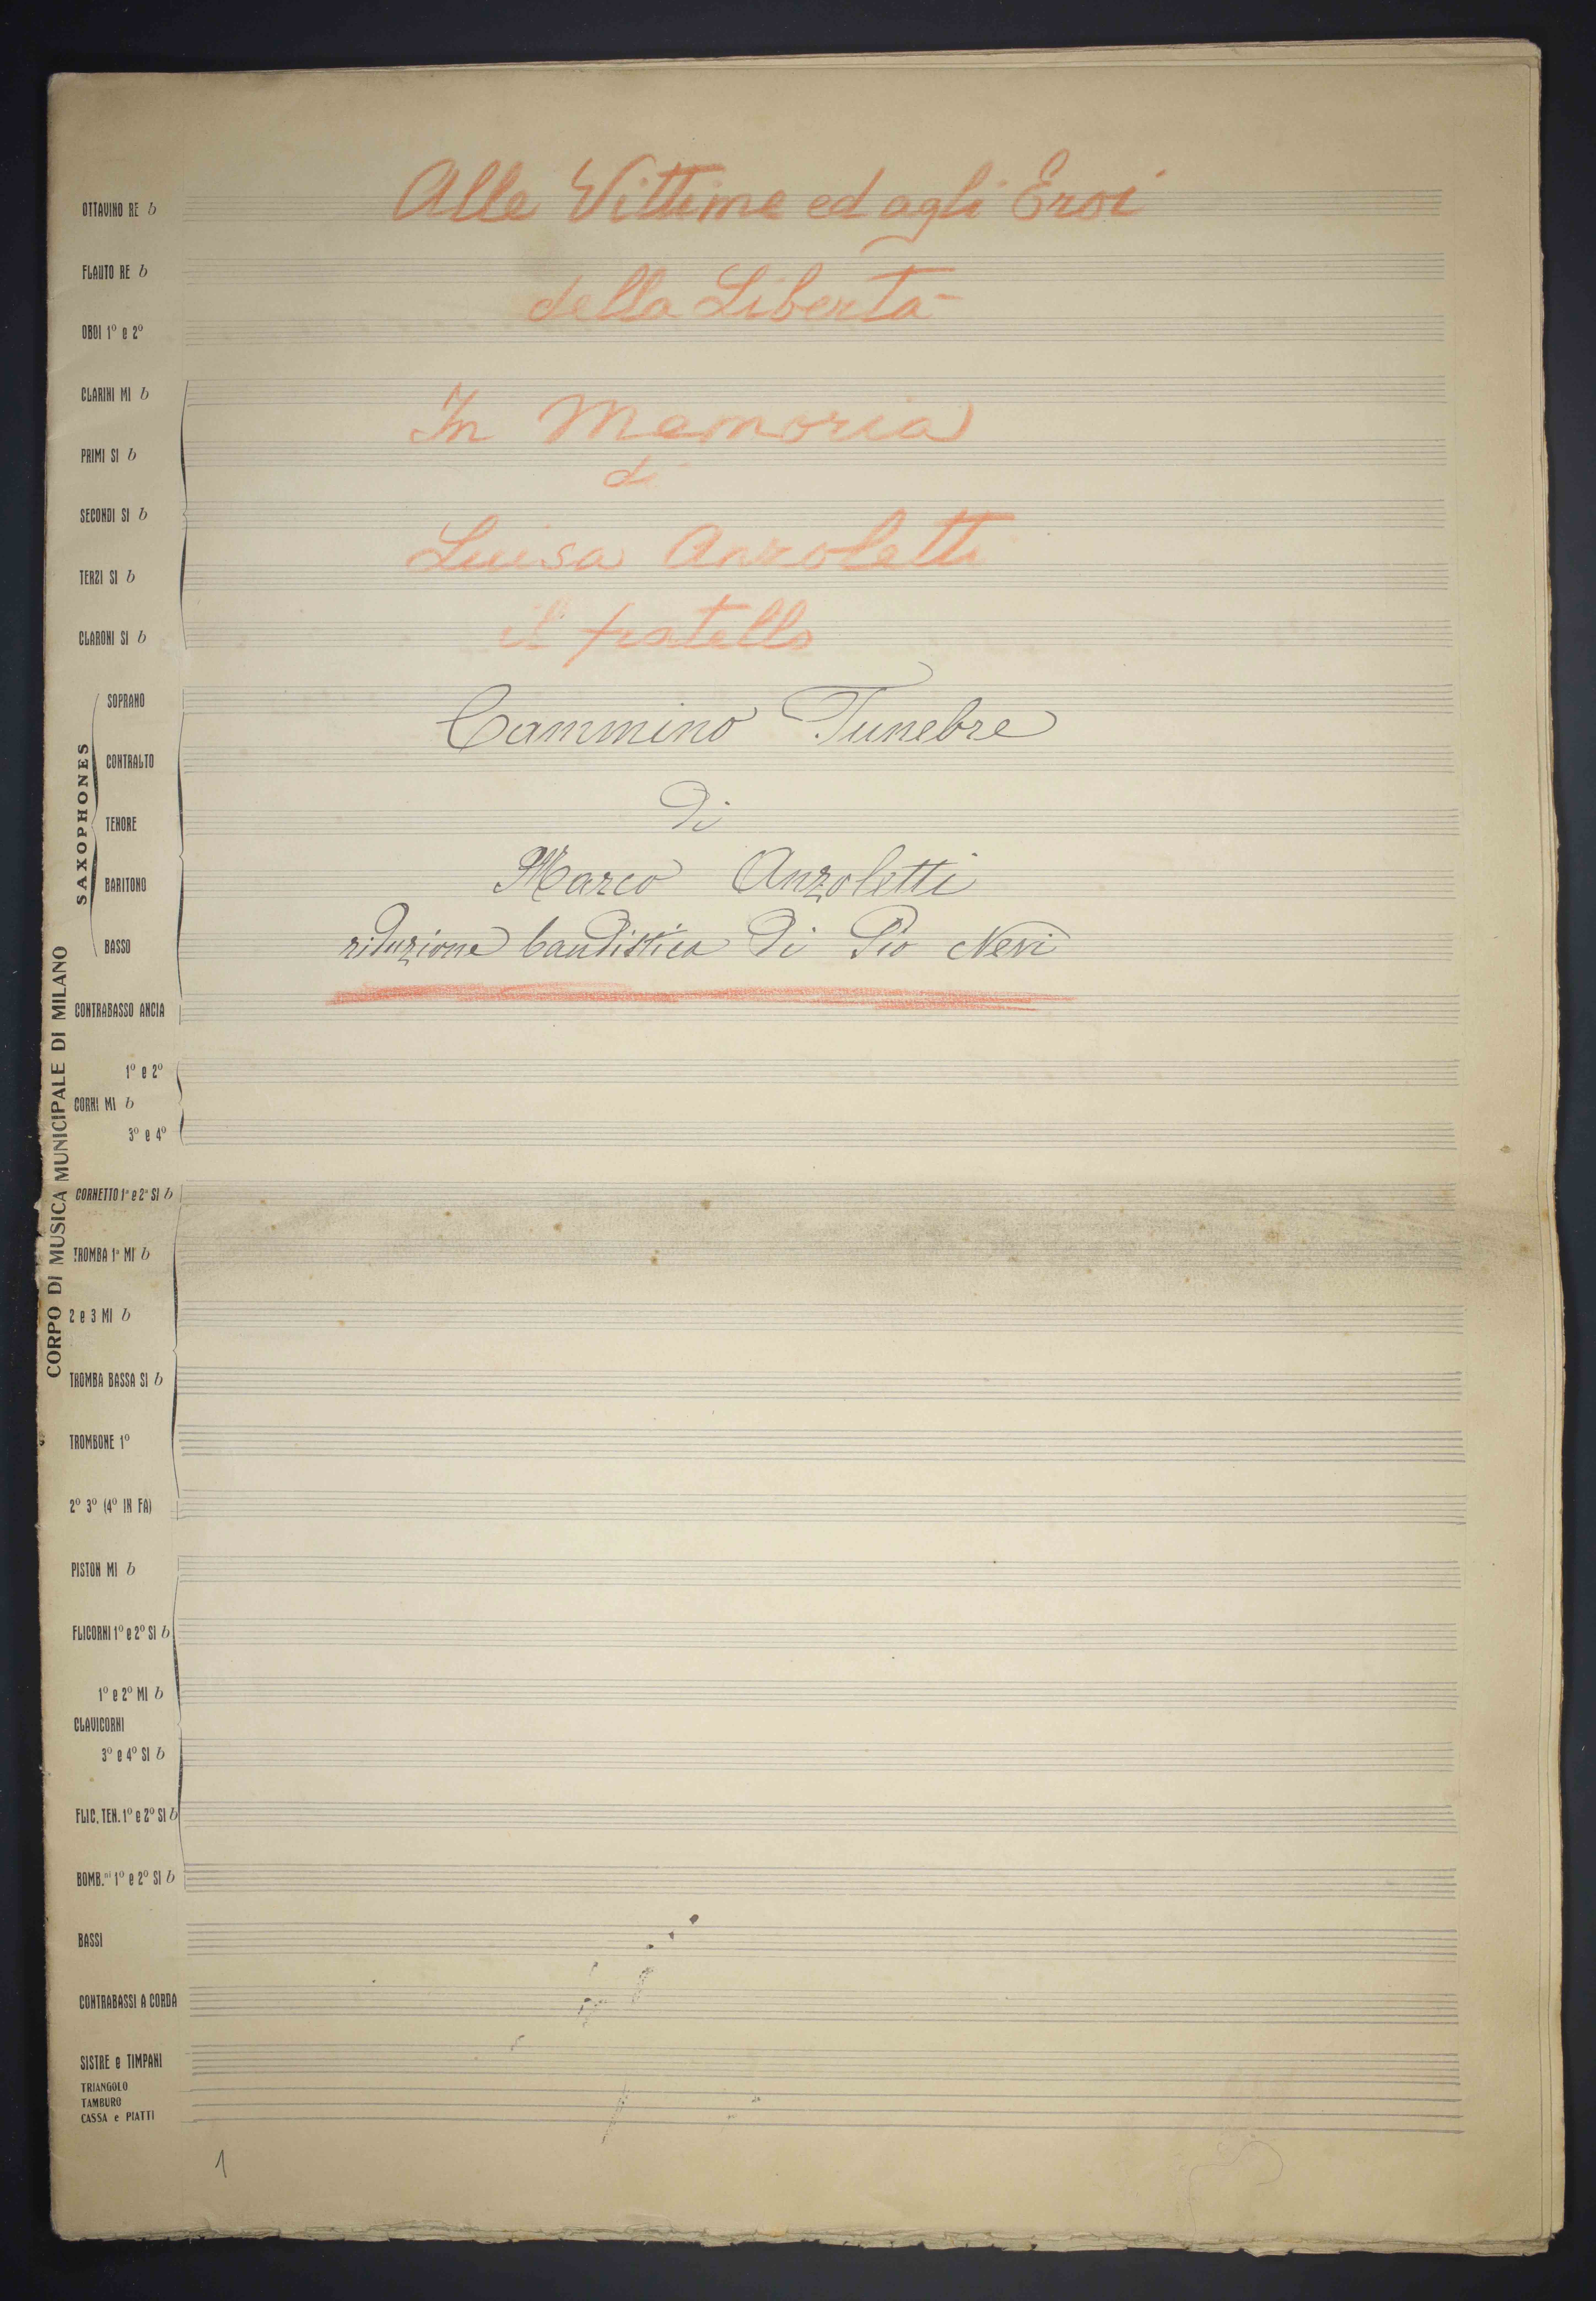 Alle Vittime ed agli Eroi
della Libertà
In Memoria
di
Luisa Anzoletti
il fratello
Cammino Funebre
di
Marco Anzoletti
riduzione bandistica di Pio Nevi
CORPO DI MUSICA MUNICIPALE DI MILANO
OTTAVINO RE b
FLAUTO RE b
OBOI 1º e 2º
CLARINI MI b
PRIMI SI b
SECONDI SI b
TERZI SI b
CLARONI SI b
SAXOPHONES
SOPRANO
CONTRALTO
TENORE
BARITONO
BASSO
CONTRABASSO ANCIA
1º e 2º
CORNI MI b
3º e 4º
CORNETTO 1º e 2º SI b
TROMBA 1ª MI b
2 e 3 MI b
TROMBA BASSA SI b
TROMBONE 1º
2º 3º (4º IN FA)
PISTON MI b
FLICORNI 1º e 2º SI b
1º e 2º MI b
CLAVICORNI
3º e 4º SI b
FLIC. TEN. 1º e 2º SI b
BOMB.ni 1º e 2º SI b
BASSI
CONTRABASSI A CORDA
SISTRE e TIMPANI
TRIANGOLO
TAMBURO
CASSA e PIATTI
1